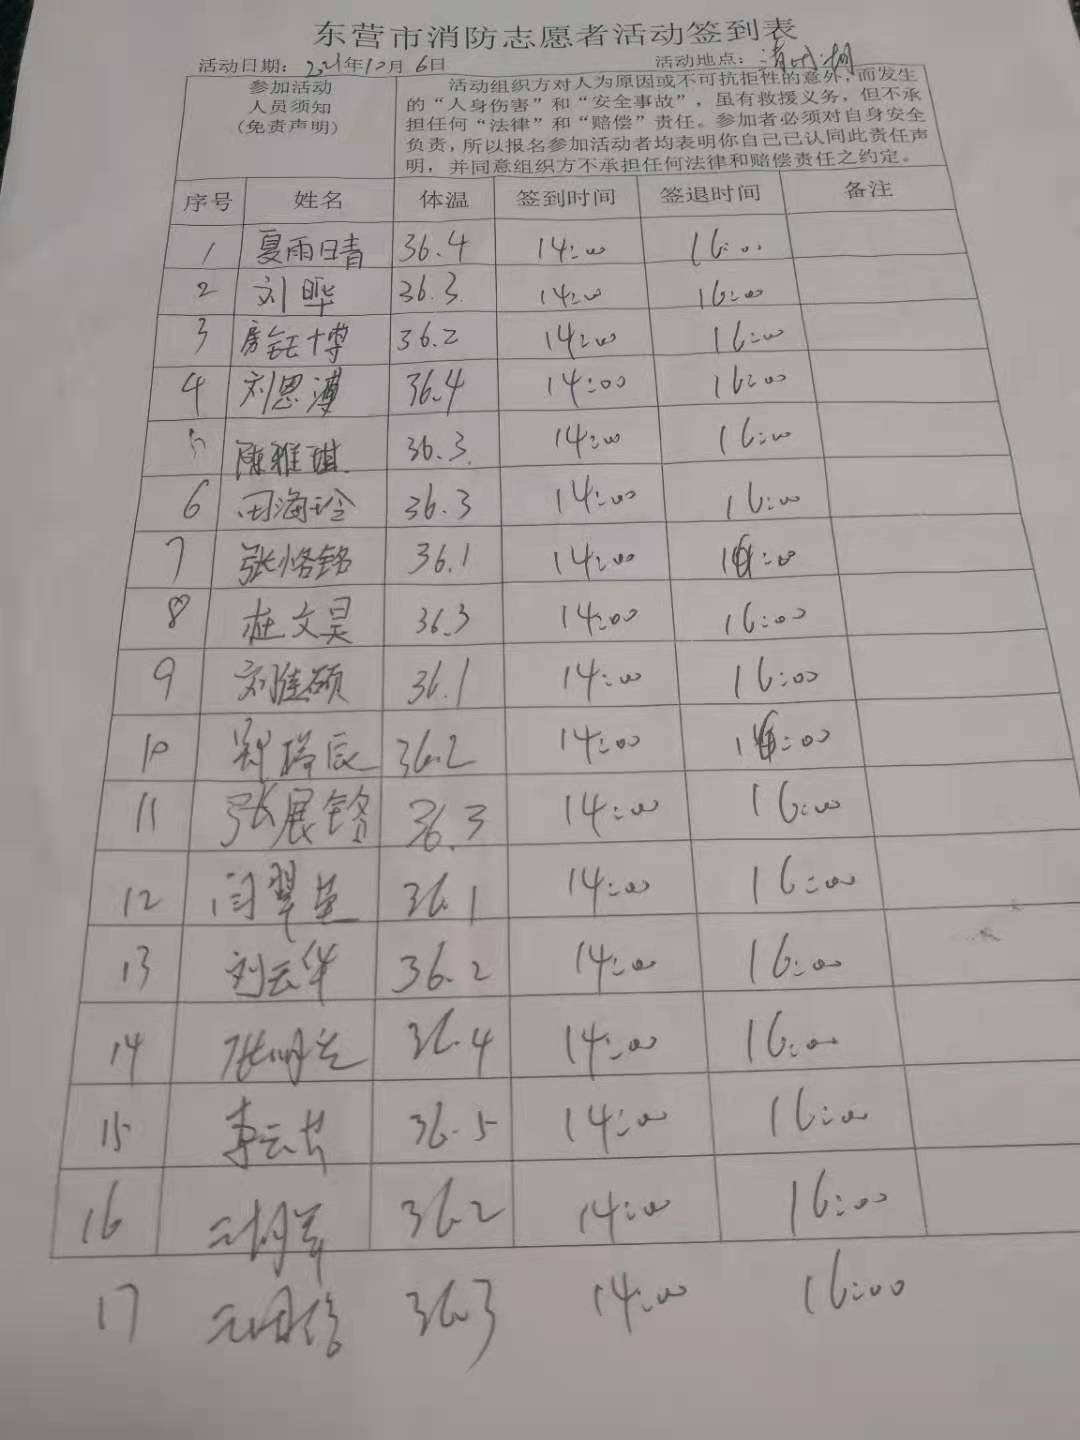 东营市消防志愿者活动签到表
活动日期：2021年10月6日 活动地点：清风湖
参加活动
人员须知
（免责声明）
活动组织方对人为原因或不可抗拒性的意外，而发生
的“人身伤害”和“安全事故”，虽有救援义务，但不承
担任何“法律”和“赔偿”责任。参加者必须对自身安全
负责，所以报名参加活动者均表明你自己已认同此责任声
明，并同意组织方不承担任何法律和赔偿责任之约定。
序号 姓名 体温 签到时间 签退时间 备注
1 夏雨晴 36.4 14:00 16:00
2 刘晔 36.3 14:00 16:00
3 房钰博 36.2 14:00 16:00
4 刘思溥 36.4 14:00 16:00
5 陈雅琪 36.3 14:00 16:00
6 田海玲 36.3 14:00 16:00
7 张恪铭 36.1 14:00 16:00
8 杜文昊 36.3 14:00 16:00
9 刘佳硕 36.1 14:00 16:00
10 36.2 14:00 16:00
11 张展铭 36.3 14:00 16:00
12 闫翠 36.1 14:00 16:00
13 刘云华 36.2 14:00 16:00
14 张明 36.4 14:00 16:00
15 李云 36.5 14:00 16:00
16 36.2 14:00 16:00
17 36.3 14:00 16:00